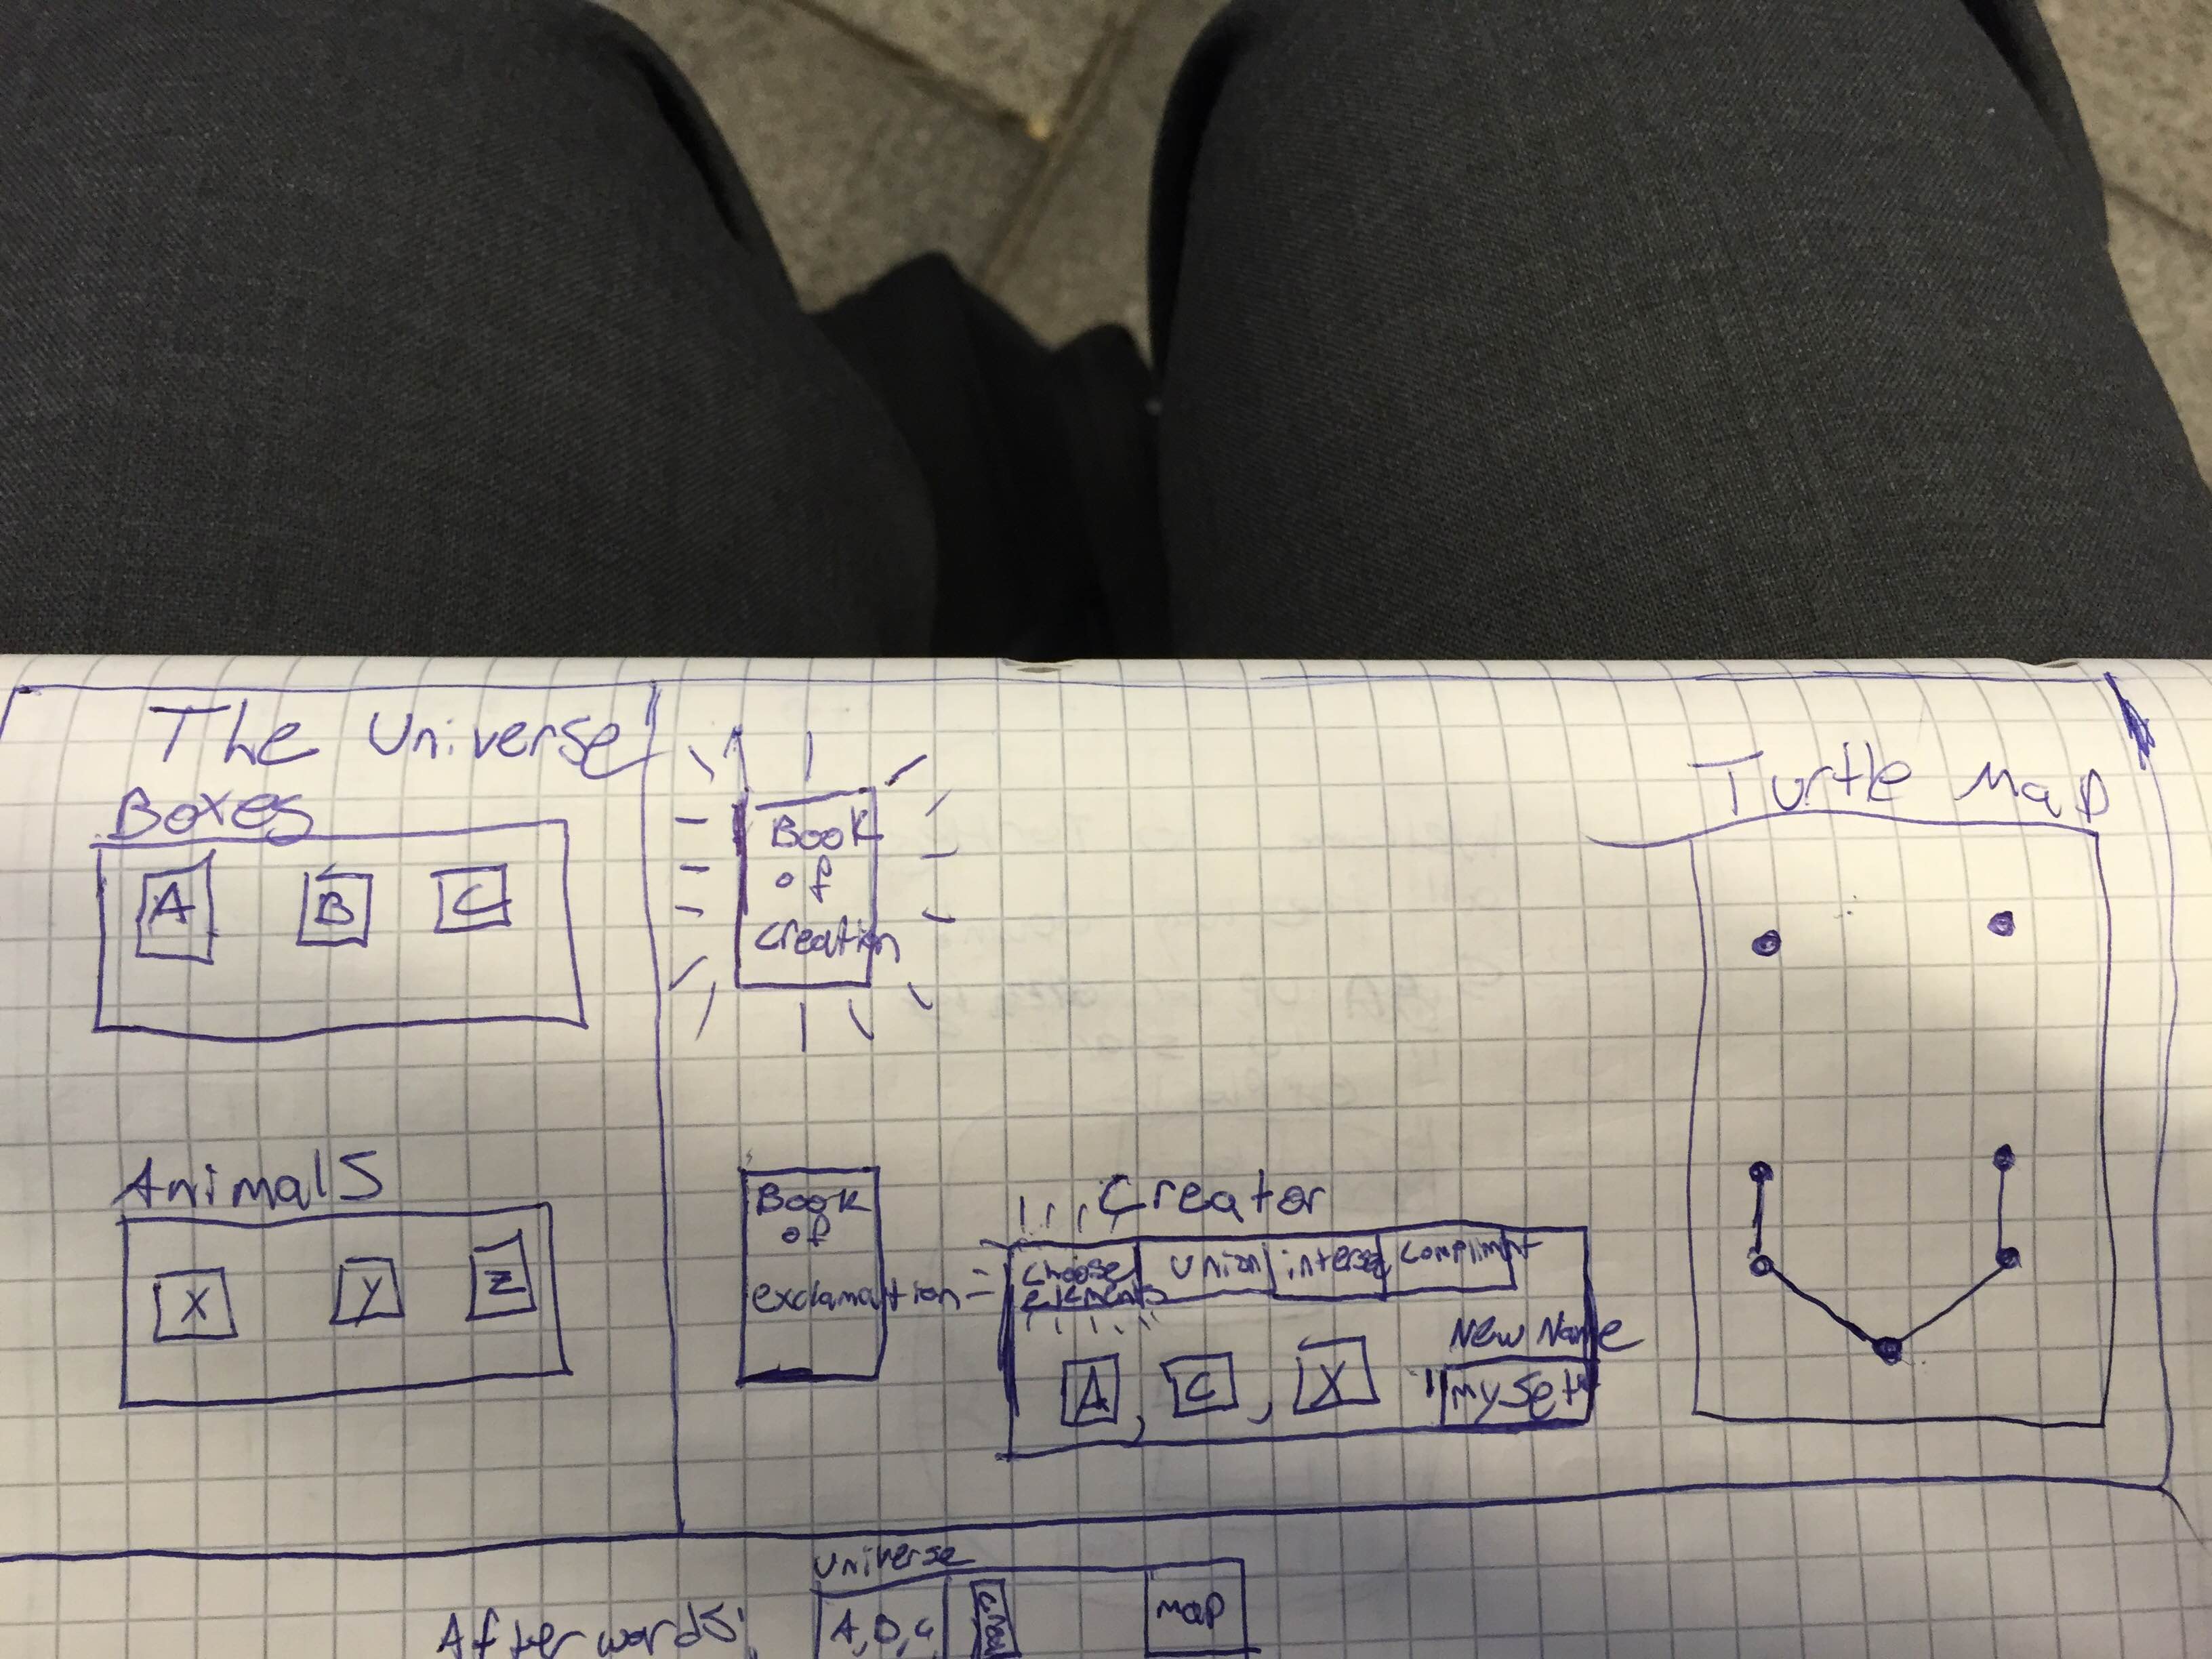 The Universe
Boxes
A B C
Animals
X Y Z
Book
of
creation
Book
of
exclamation
Creator
choose
elements
union
interse
compliment
A, C, X
New Name
"my set"
Turtle Map
Afterwords:
universe
map